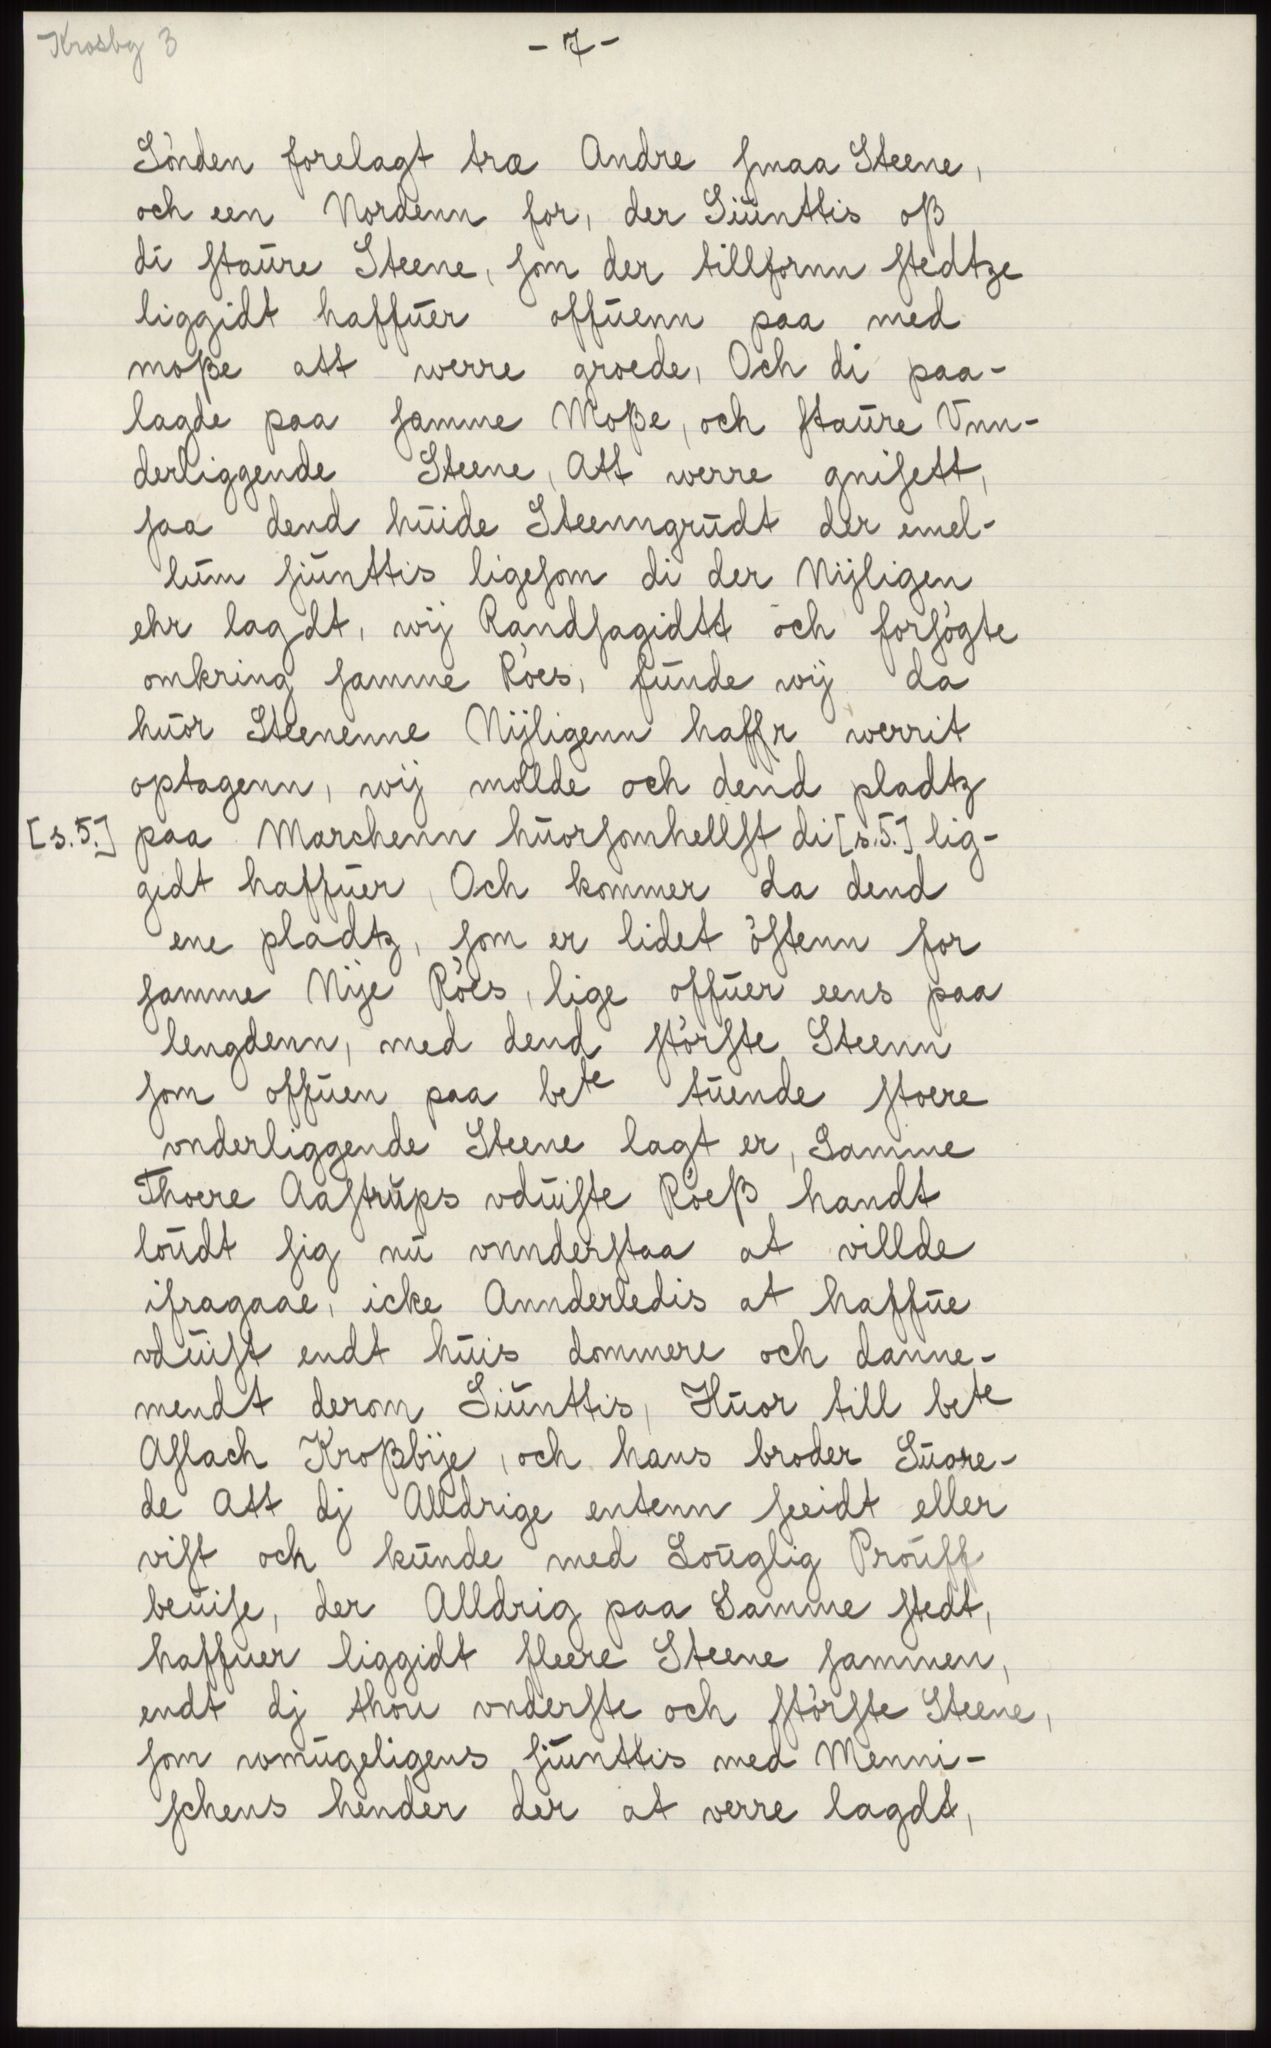 Krosby 3
- 7 -
Sönden forelagt træ Andre smaa Steene,
och een Nordenn for, der Siünttis oß
di staüre Steene, som der tillfornn stedtze
liggidt haffüer offüenn paa med
moße att werre groede, Och di paa-
lagde paa samme Moße, och staüre Vnn-
derliggende Steene, Att werre gnisett,
saa dend hüide Steenngrüdt der emel-
lüm siünttis ligesom di der Nijligen
ehr lagdt, wij Randsagidtt och forsögte
omkring samme Röes, fünde wij da
huor Steenenne Nijligenn haffr werrit
optagenn, wij mollde och dend pladtz
[s.5.] paa Marchenn hüorsomhellst di [s.5.] lig-
gidt haffüer, Och kommer da dend
ene pladtz, som er lidet östenn for
samme Nije Röes, lige offüer eens paa
lengdenn, med dend störste Steenn
som offüen paa bete tüende stoere
vnderliggende Steene lagt er, Samme
Thoere Aastrüps vdüiste Röeß handt
loüdt sig nü vnnderstaa at villde
ifragaae, icke Annderledis at haffüe
vdüist endt hüis dommere och danne-
mendt derom Siünttis, Hüor till bete
Aslach Kroßbije, och hans broder Süare-
de Att dj Alldrige entenn seeidt eller
vist och künde med Loüglig Proüff
beüise, der Alldrig paa Samme stedt,
haffuer liggidt fleere Steene sammen,
endt dj thou vnderste och störste Steene,
som womügeligens siünttis med Menni-
schens hender der at verre lagdt,